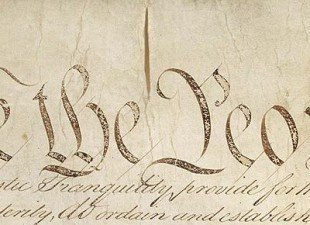 the Peo
stic Tranquility, provide for th
terity, do ordain and establis